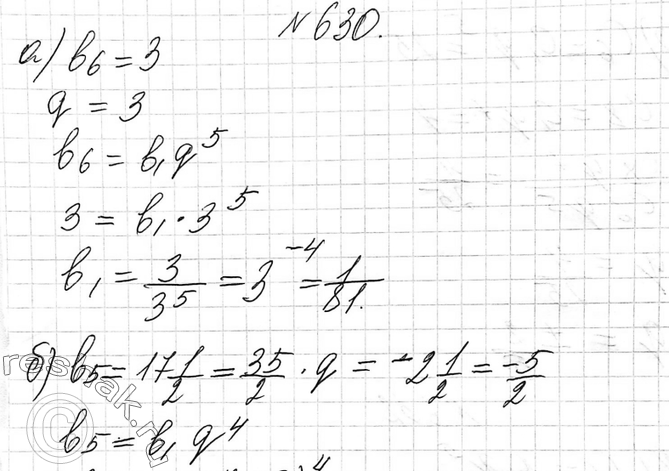 № 630.
а) b₆ = 3
q = 3
b₆ = b₁q⁵
3 = b₁ · 3⁵
b₁ = 3/3⁵ = 3⁻⁴ = 1/81.
б) b₅ = 17 1/2 = 35/2 · q = -2 1/2 = -5/2
b₅ = b₁ q⁴
reshak.ru